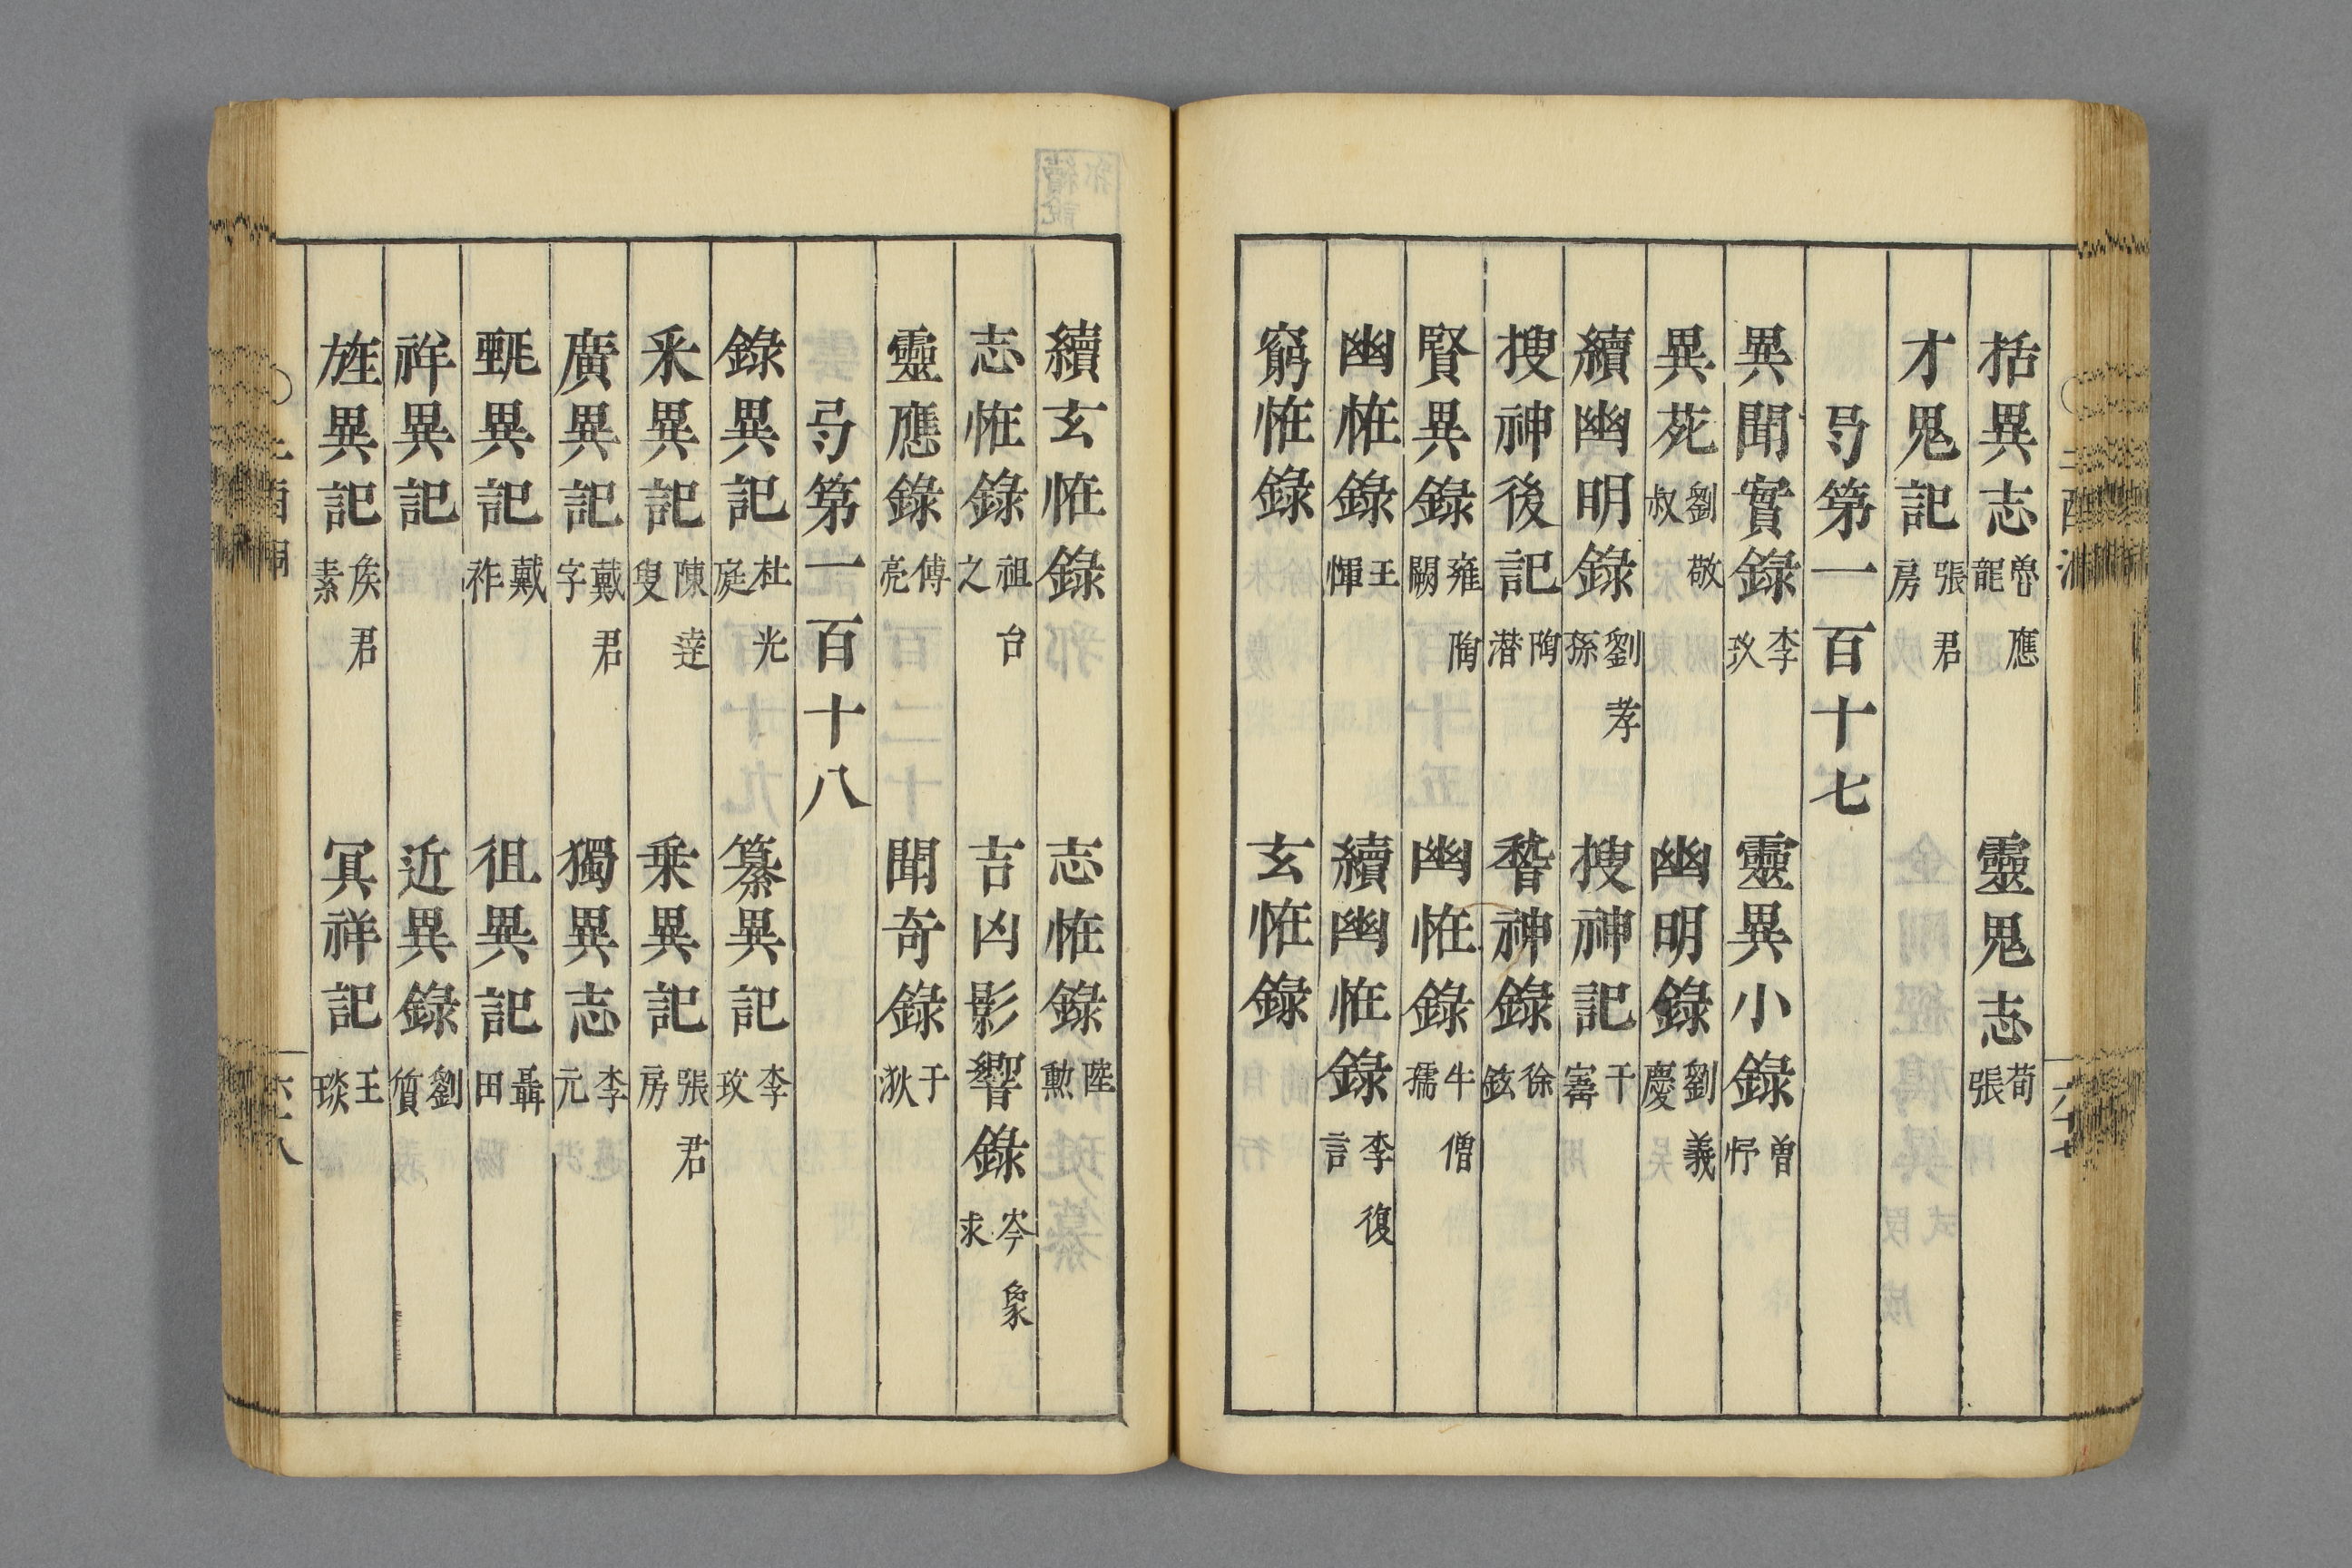 括異志魯應龍 靈鬼志荀張
才鬼記張君房
弓第一百十七
異聞實錄李玫 靈異小錄曾忬
異苑劉敬叔 幽明錄劉義慶
續幽明錄劉孝孫 搜神記干寶
搜神後記陶潛 稽神錄徐鉉
賢異錄雍陶闕 幽恠錄牛僧孺
幽恠錄王惲 續幽恠錄李復言
窮恠錄 玄恠錄
續玄恠錄 志恠錄陸勲
志恠錄祖台之 吉凶影響錄岑象求
靈應錄傅亮 聞奇錄于逖
弓第一百十八
錄異記杜光庭 纂異記李玫
采異記陳達叟 乘異記張君房
廣異記戴君孚 獨異志李元
甄異記戴祚 徂異記聶田
祥異記 近異錄劉質
旌異記侯君素 冥祥記王琰